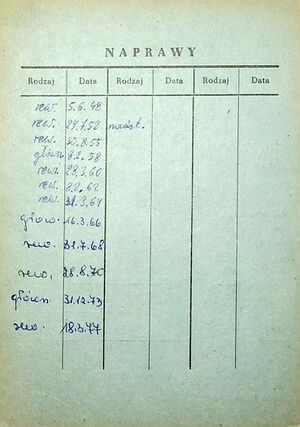 NAPRAWY
Rodzaj Data Rodzaj Data Rodzaj Data
rew. 5.6.48
rew. 27.7.52
rew. 30.8.55
główn 8.2.58
rew. 28.3.60
rew. 8.2.62
rew. 31.3.64
główn. 16.3.66
rew. 31.7.68
rew. 28.8.70
główn 31.12.73
rew. 18.3.77